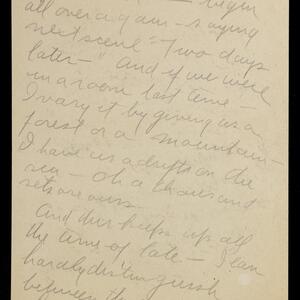 begin
all over again - saying
next scene "Two days
later -" And if we were
in a room last time -
I vary it by giving us a
forest or a mountain -
I have us adrift on the
sea - Oh a thousand
sets are ours.
And this keeps up all
the time of late - I can
hardly distinguish
between the